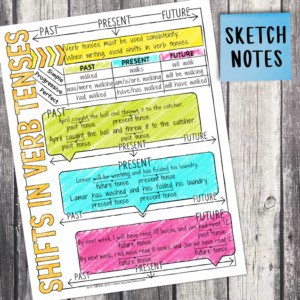 SKETCH
NOTES
SHIFTS IN VERB TENSES
PAST PRESENT FUTURE
Verb tenses must be used consistently.
When writing, avoid shifts in verb tenses
PAST PRESENT FUTURE
Simple walked walks will walk
Progressive was/were walking am/is/are walking will be walking
Perfect had walked have/has walked will have walked
PAST
April caught the ball and throws it to the catcher.
past tense present tense
April caught the ball and threw it to the catcher.
past tense past tense
PRESENT
Lamar will be washing and has folded his laundry.
future tense present tense
Lamar has washed and has folded his laundry.
present tense present tense
FUTURE
By next week, I will have read 10 books, and Jon had read
future tense past tense
By next week, I will have read 10 books, and Jon will have read
future tense future tense